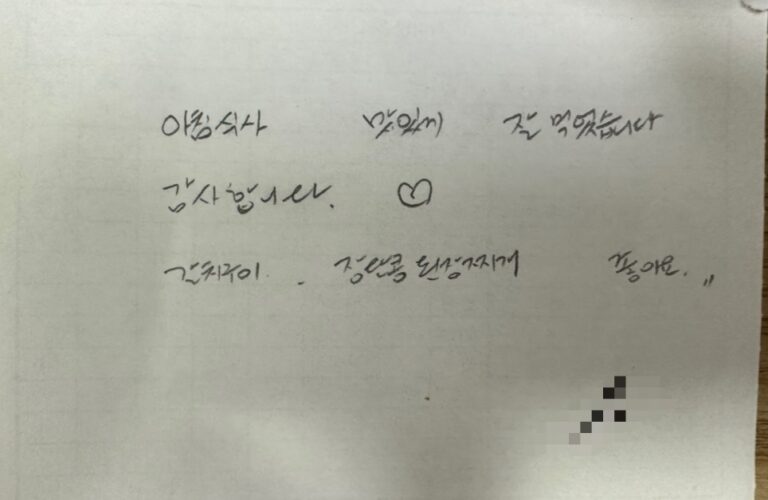 아침식사 맛있게 잘 먹었습니다
감사합니다. ♡
갈치구이. 된장찌개 좋아요. "